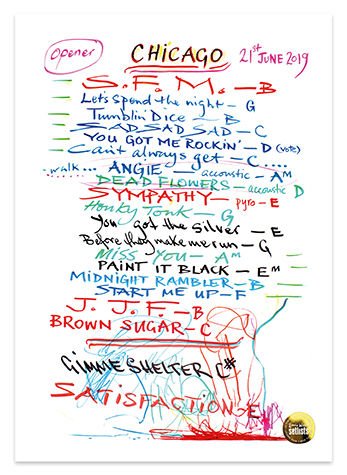 Opener
CHICAGO 21st JUNE 2019
S.F.M. – B
Let's spend the night – G
Tumblin' Dice – B
SAD SAD SAD – C
YOU GOT ME ROCKIN' – D (vote)
Can't always get – C....
walk... ANGIE – acoustic – Am
DEAD FLOWERS – acoustic D
SYMPATHY – pyro – E
Honky Tonk – G
You got the silver – E
Before they make me run – G
MISS YOU – Am
PAINT IT BLACK – Em
MIDNIGHT RAMBLER – B
START ME UP – F
J.J.F. – B
BROWN SUGAR – C
GIMME SHELTER C#
SATISFACTION – E
setlists